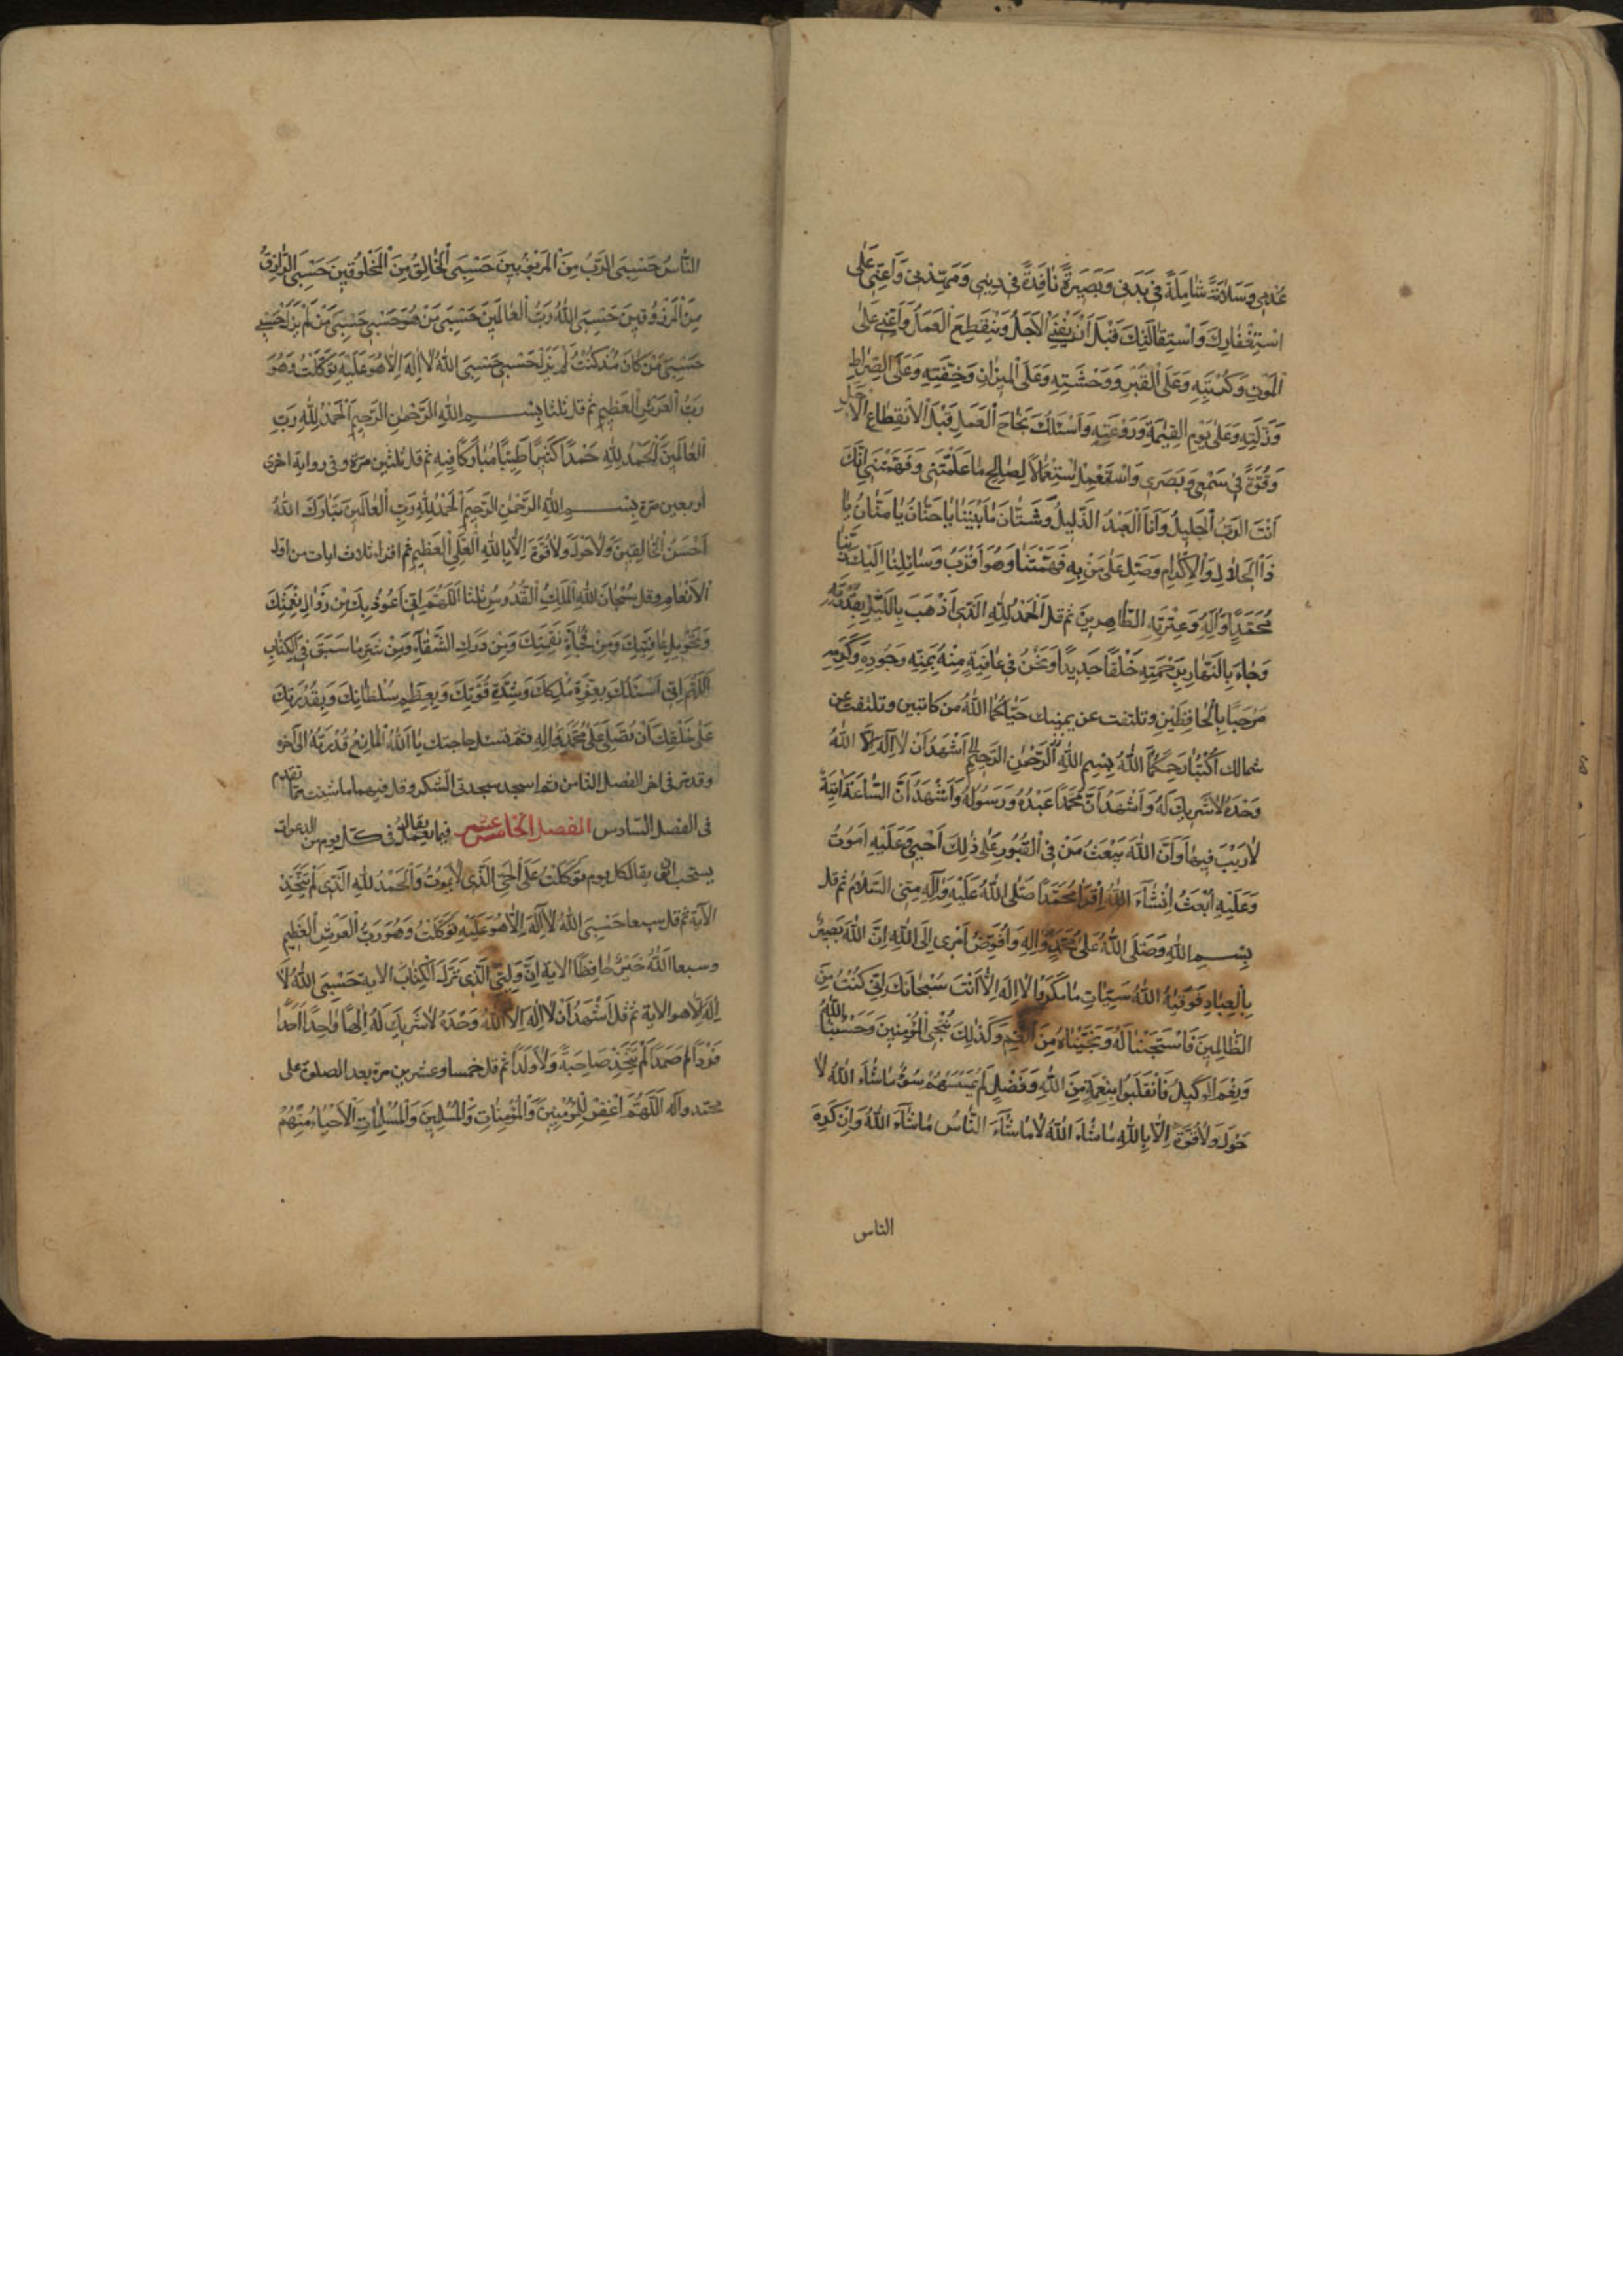 عُمْرِي وَسَلَامَةً شَامِلَةً فِي بَدَنِي وَبَصِيرَةً نَافِذَةً فِي دِينِي وَمَهِّدْنِي وَاَعِنِّي عَلَى
اسْتِغْفَارِكَ وَاسْتِقَالَتِكَ قَبْلَ اَنْ يَفْنَى الْاَجَلُ وَيَنْقَطِعَ الْعَمَلُ وَاَعِنِّي عَلَى
الْمَوْتِ وَكُرْبَتِهِ وَعَلَى الْقَبْرِ وَوَحْشَتِهِ وَعَلَى الْمِيزَانِ وَخِفَّتِهِ وَعَلَى الصِّرَاطِ
وَزَلَّتِهِ وَعَلَى يَوْمِ الْقِيٰمَةِ وَرَوْعَتِهِ وَاَسْئَلُكَ نَجَاحَ الْعَمَلِ قَبْلَ الْاِنْقِطَاعِ الْاَجَلِ
وَقُوَّةً فِي سَمْعِي وَبَصَرِي وَاسْتِعْمَالًا لِصَالِحِ مَا عَلَّمْتَنِي وَفَهَّمْتَنِي اِنَّكَ
اَنْتَ الرَّبُّ الْجَلِيلُ وَاَنَا الْعَبْدُ الذَّلِيلُ وَشَتَّانَ مَا بَيْنَنَا يَا حَنَّانُ يَا مَنَّانُ يَا
ذَا الْجَلَالِ وَالْاِكْرَامِ وَصَلِّ عَلَى مَنْ بِهِ فَهَّمْتَنَا وَهُوَ اَقْرَبُ وَسَائِلِنَا اِلَيْكَ رَبَّنَا
مُحَمَّدٍ وَآلِهِ وَعِتْرَتِهِ الطَّاهِرِينَ ثم قل اَلْحَمْدُ لِلّٰهِ الَّذِي اَذْهَبَ بِاللَّيْلِ بِقُدْرَتِهِ
وَجَاءَ بِالنَّهَارِ بِرَحْمَتِهِ خَلْقًا جَدِيدًا وَنَحْنُ فِي عَافِيَةٍ مِنْهُ بِمَنِّهِ وَجُودِهِ وَكَرَمِهِ
مَرْحَبًا بِالْحَافِظَيْنِ وتلتفت عن يمينك حَيَّاكُمَا اللهُ من كاتبين وتلتفت عن
شمالك اُكْتُبَا رَحِمَكُمَا اللهُ بِسْمِ اللهِ الرَّحْمٰنِ الرَّحِيمِ اَشْهَدُ اَنْ لَا اِلٰهَ اِلَّا اللهُ
وَحْدَهُ لَا شَرِيكَ لَهُ وَاَشْهَدُ اَنَّ مُحَمَّدًا عَبْدُهُ وَرَسُولُهُ وَاَشْهَدُ اَنَّ السَّاعَةَ آتِيَةٌ
لَا رَيْبَ فِيهَا وَاَنَّ اللهَ يَبْعَثُ مَنْ فِي الْقُبُورِ عَلَى ذٰلِكَ اَحْيٰى وَعَلَيْهِ اَمُوتُ
وَعَلَيْهِ اُبْعَثُ اِنْشَاءَ اللهُ اِقْرَأَا مُحَمَّدًا صَلَّى اللهُ عَلَيْهِ وَآلِهِ مِنِّي السَّلَامُ ثم قل
بِسْمِ اللهِ وَصَلَّى اللهُ عَلَى مُحَمَّدٍ وَآلِهِ وَاُفَوِّضُ اَمْرِي اِلَى اللهِ اِنَّ اللهَ بَصِيرٌ
بِالْعِبَادِ فَوَقٰيهُ اللهُ سَيِّئَاتِ مَا مَكَرُوا لَا اِلٰهَ اِلَّا اَنْتَ سُبْحَانَكَ اِنِّي كُنْتُ مِنَ
الظَّالِمِينَ فَاسْتَجَبْنَا لَهُ وَنَجَّيْنَاهُ مِنَ الْغَمِّ وَكَذٰلِكَ نُنْجِي الْمُؤْمِنِينَ وَحَسْبُنَا اللهُ
وَنِعْمَ الْوَكِيلُ فَانْقَلَبُوا بِنِعْمَةٍ مِنَ اللهِ وَفَضْلٍ لَمْ يَمْسَسْهُمْ سُوءٌ مَا شَاءَ اللهُ لَا
حَوْلَ وَلَا قُوَّةَ اِلَّا بِاللهِ مَا شَاءَ اللهُ لَا مَا شَاءَ النَّاسُ مَا شَاءَ اللهُ وَاِنْ كَرِهَ
الناس
النَّاسُ حَسْبِيَ الرَّبُّ مِنَ الْمَرْبُوبِينَ حَسْبِيَ الْخَالِقُ مِنَ الْمَخْلُوقِينَ حَسْبِيَ الرَّازِقُ
مِنَ الْمَرْزُوقِينَ حَسْبِيَ اللهُ رَبُّ الْعَالَمِينَ حَسْبِي مَنْ هُوَ حَسْبِي حَسْبِي مَنْ لَمْ يَزَلْ حَسْبِي
حَسْبِي مَنْ كَانَ مُذْ كُنْتُ لَمْ يَزَلْ حَسْبِي حَسْبِيَ اللهُ لَا اِلٰهَ اِلَّا هُوَ عَلَيْهِ تَوَكَّلْتُ وَهُوَ
رَبُّ الْعَرْشِ الْعَظِيمِ ثم قل ثلثا بِسْمِ اللهِ الرَّحْمٰنِ الرَّحِيمِ اَلْحَمْدُ لِلّٰهِ رَبِّ
الْعَالَمِينَ اَلْحَمْدُ لِلّٰهِ حَمْدًا كَثِيرًا طَيِّبًا مُبَارَكًا فِيهِ ثم قل ثلثين مرة وفى رواية اخرى
اربعين مرة بِسْمِ اللهِ الرَّحْمٰنِ الرَّحِيمِ اَلْحَمْدُ لِلّٰهِ رَبِّ الْعَالَمِينَ تَبَارَكَ اللهُ
اَحْسَنُ الْخَالِقِينَ وَلَا حَوْلَ وَلَا قُوَّةَ اِلَّا بِاللهِ الْعَلِيِّ الْعَظِيمِ ثم اقراء ثلاث ايات من اول
الْاَنْعَامِ وقل سُبْحَانَ اللهِ الْمَلِكِ الْقُدُّوسِ ثلثا اَللّٰهُمَّ اِنِّي اَعُوذُ بِكَ مِنْ زَوَالِ نِعْمَتِكَ
وَتَحْوِيلِ عَافِيَتِكَ وَمِنْ فُجْأَةِ نَقِمَتِكَ وَمِنْ دَرَكِ الشَّقَاءِ وَمِنْ شَرِّ مَا سَبَقَ فِي الْكِتَابِ
اَللّٰهُمَّ اِنِّي اَسْئَلُكَ بِعِزَّةِ مُلْكِكَ وَشِدَّةِ قُوَّتِكَ وَبِعِظَمِ سُلْطَانِكَ وَبِقُدْرَتِكَ
عَلَى خَلْقِكَ اَنْ تُصَلِّيَ عَلَى مُحَمَّدٍ وَآلِهِ ثم تسئل حاجتك يَا اَللهُ الْمَانِعُ قُدْرَتَهُ الى آخره
وقد مر فى اخر الفصل الثامن ثم اسجد سجدتى الشكر وقل فيهما ما شئت مما تقدم
فى الفصل السادس الفصل الخامس عشر فيما يعمل ويقال فى كل يوم من الدعوات
يستحب ان يقال كل يوم تَوَكَّلْتُ عَلَى الْحَيِّ الَّذِي لَا يَمُوتُ وَالْحَمْدُ لِلّٰهِ الَّذِي لَمْ يَتَّخِذْ
الآية ثم قل سبعا حَسْبِيَ اللهُ لَا اِلٰهَ اِلَّا هُوَ عَلَيْهِ تَوَكَّلْتُ وَهُوَ رَبُّ الْعَرْشِ الْعَظِيمِ
وسبعا اَللهُ خَيْرٌ حَافِظًا الاية اِنَّ وَلِيِّيَ اللهُ الَّذِي نَزَّلَ الْكِتَابَ الاية حَسْبِيَ اللهُ لَا
اِلٰهَ اِلَّا هو الاية ثم قل اَشْهَدُ اَنْ لَا اِلٰهَ اِلَّا اللهُ وَحْدَهُ لَا شَرِيكَ لَهُ اِلٰهًا وَاحِدًا اَحَدًا
فَرْدًا صَمَدًا لَمْ يَتَّخِذْ صَاحِبَةً وَلَا وَلَدًا ثم قل خمسا وعشرين مرة بعد الصلوة على
محمد وآله اَللّٰهُمَّ اغْفِرْ لِلْمُؤْمِنِينَ وَالْمُؤْمِنَاتِ وَالْمُسْلِمِينَ وَالْمُسْلِمَاتِ الْاَحْيَاءِ مِنْهُمْ